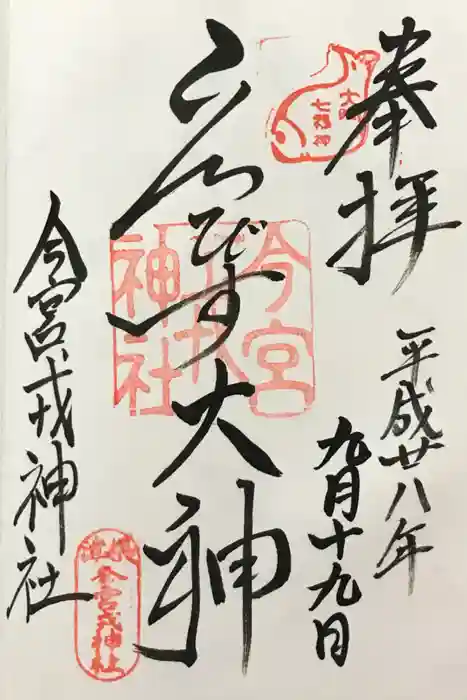 奉拝
大阪
七福神
平成廿八年
九月十九日
ゑびす大神
今宮
戎
神社
今宮戎神社
今宮戎神社